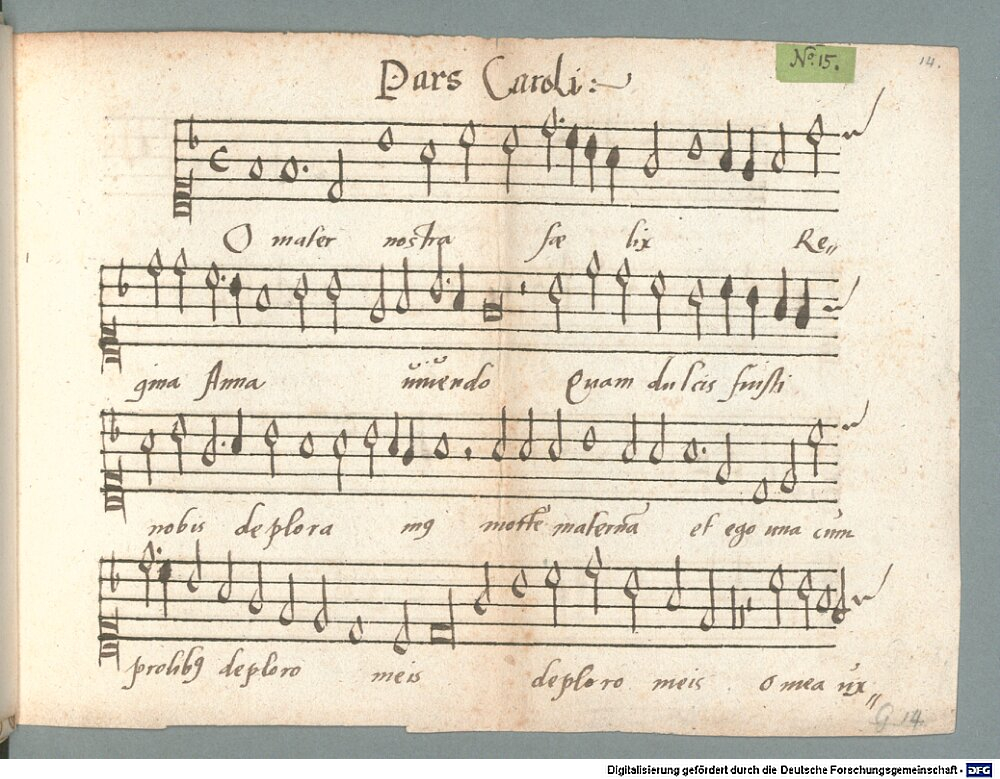 Nº 15.
14.
Pars Caroli :~
O mater nostra fæ lix Re„
gina Anna viuendo Quam dulcis fuisti
nobis deplora mꝰ morte maternā et ego una cum
prolibꝰ deploro meis deploro meis O mea ux„
G 14
Digitalisierung gefördert durch die Deutsche Forschungsgemeinschaft - DFG